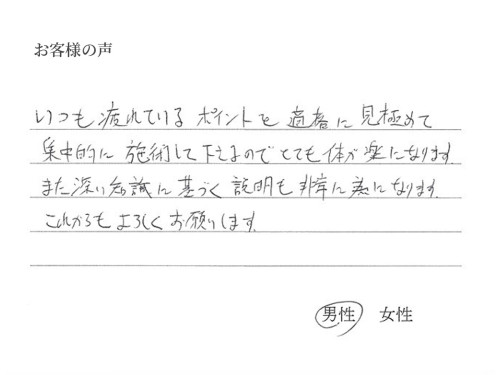 お客様の声
いつも疲れている ポイントを 適格に 見極めて
集中的に 施術して下さるので とても 体が 楽になります。
また深い知識に基づく 説明も 非常に為になります。
これからも よろしく お願いします。
男性 女性